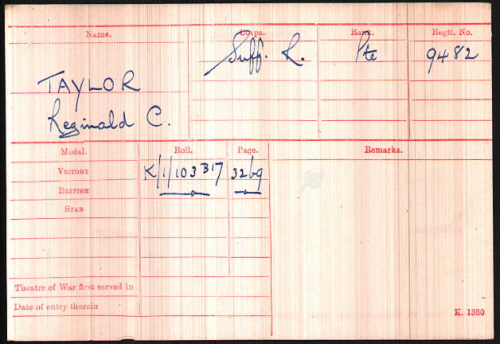 Name. Corps. Rank. Regtl. No.
TAYLOR Suff. R. Pte 9482
Reginald C.
Medal. Roll. Page. Remarks.
VICTORY K/1/103 B17 3269
BRITISH
STAR
Theatre of War first served in
Date of entry therein
K. 1380